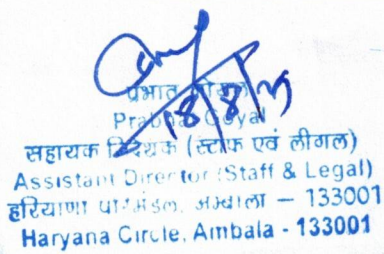 प्रभात गोयल
Prabhat Goyal
18/8/25
सहायक निदेशक (स्टाफ एवं लीगल)
Assistant Director (Staff & Legal)
हरियाणा परिमंडल, अम्बाला – 133001
Haryana Circle, Ambala - 133001